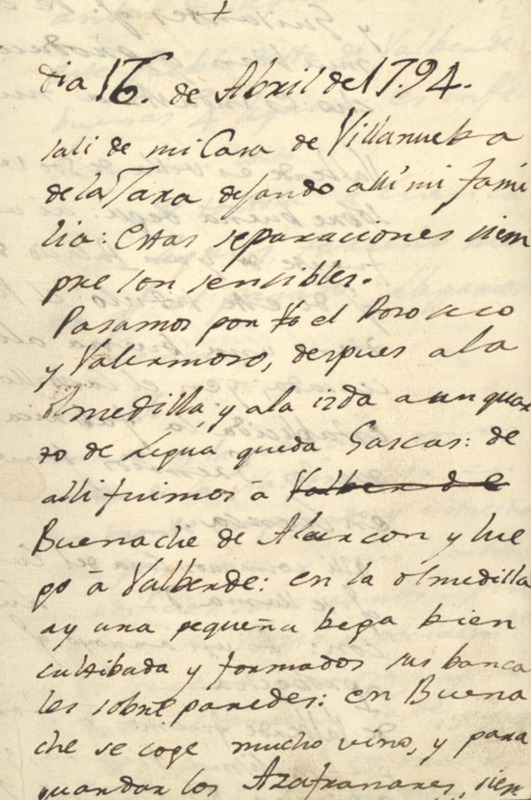 dia 16. de Abril de 1794.
sali de mi Casa de Villanueba
de la Jara dejando alli mi fami
lia: estas separaciones siem
pre son sensibles.
Pasamos por el
y Valermoso, despues a la
olmedilla y a la izda a un quar
to de Legua queda Gascas: de
alli fuimos â Valberde
Buenache de Alarcon y lue
go â Valberde: en la olmedilla
ay una pequeña bega bien
cultibada y formados sus banca
les sobre paredes: en Buena
che se coge mucho vino, y para
guardar los Azafranares, sien